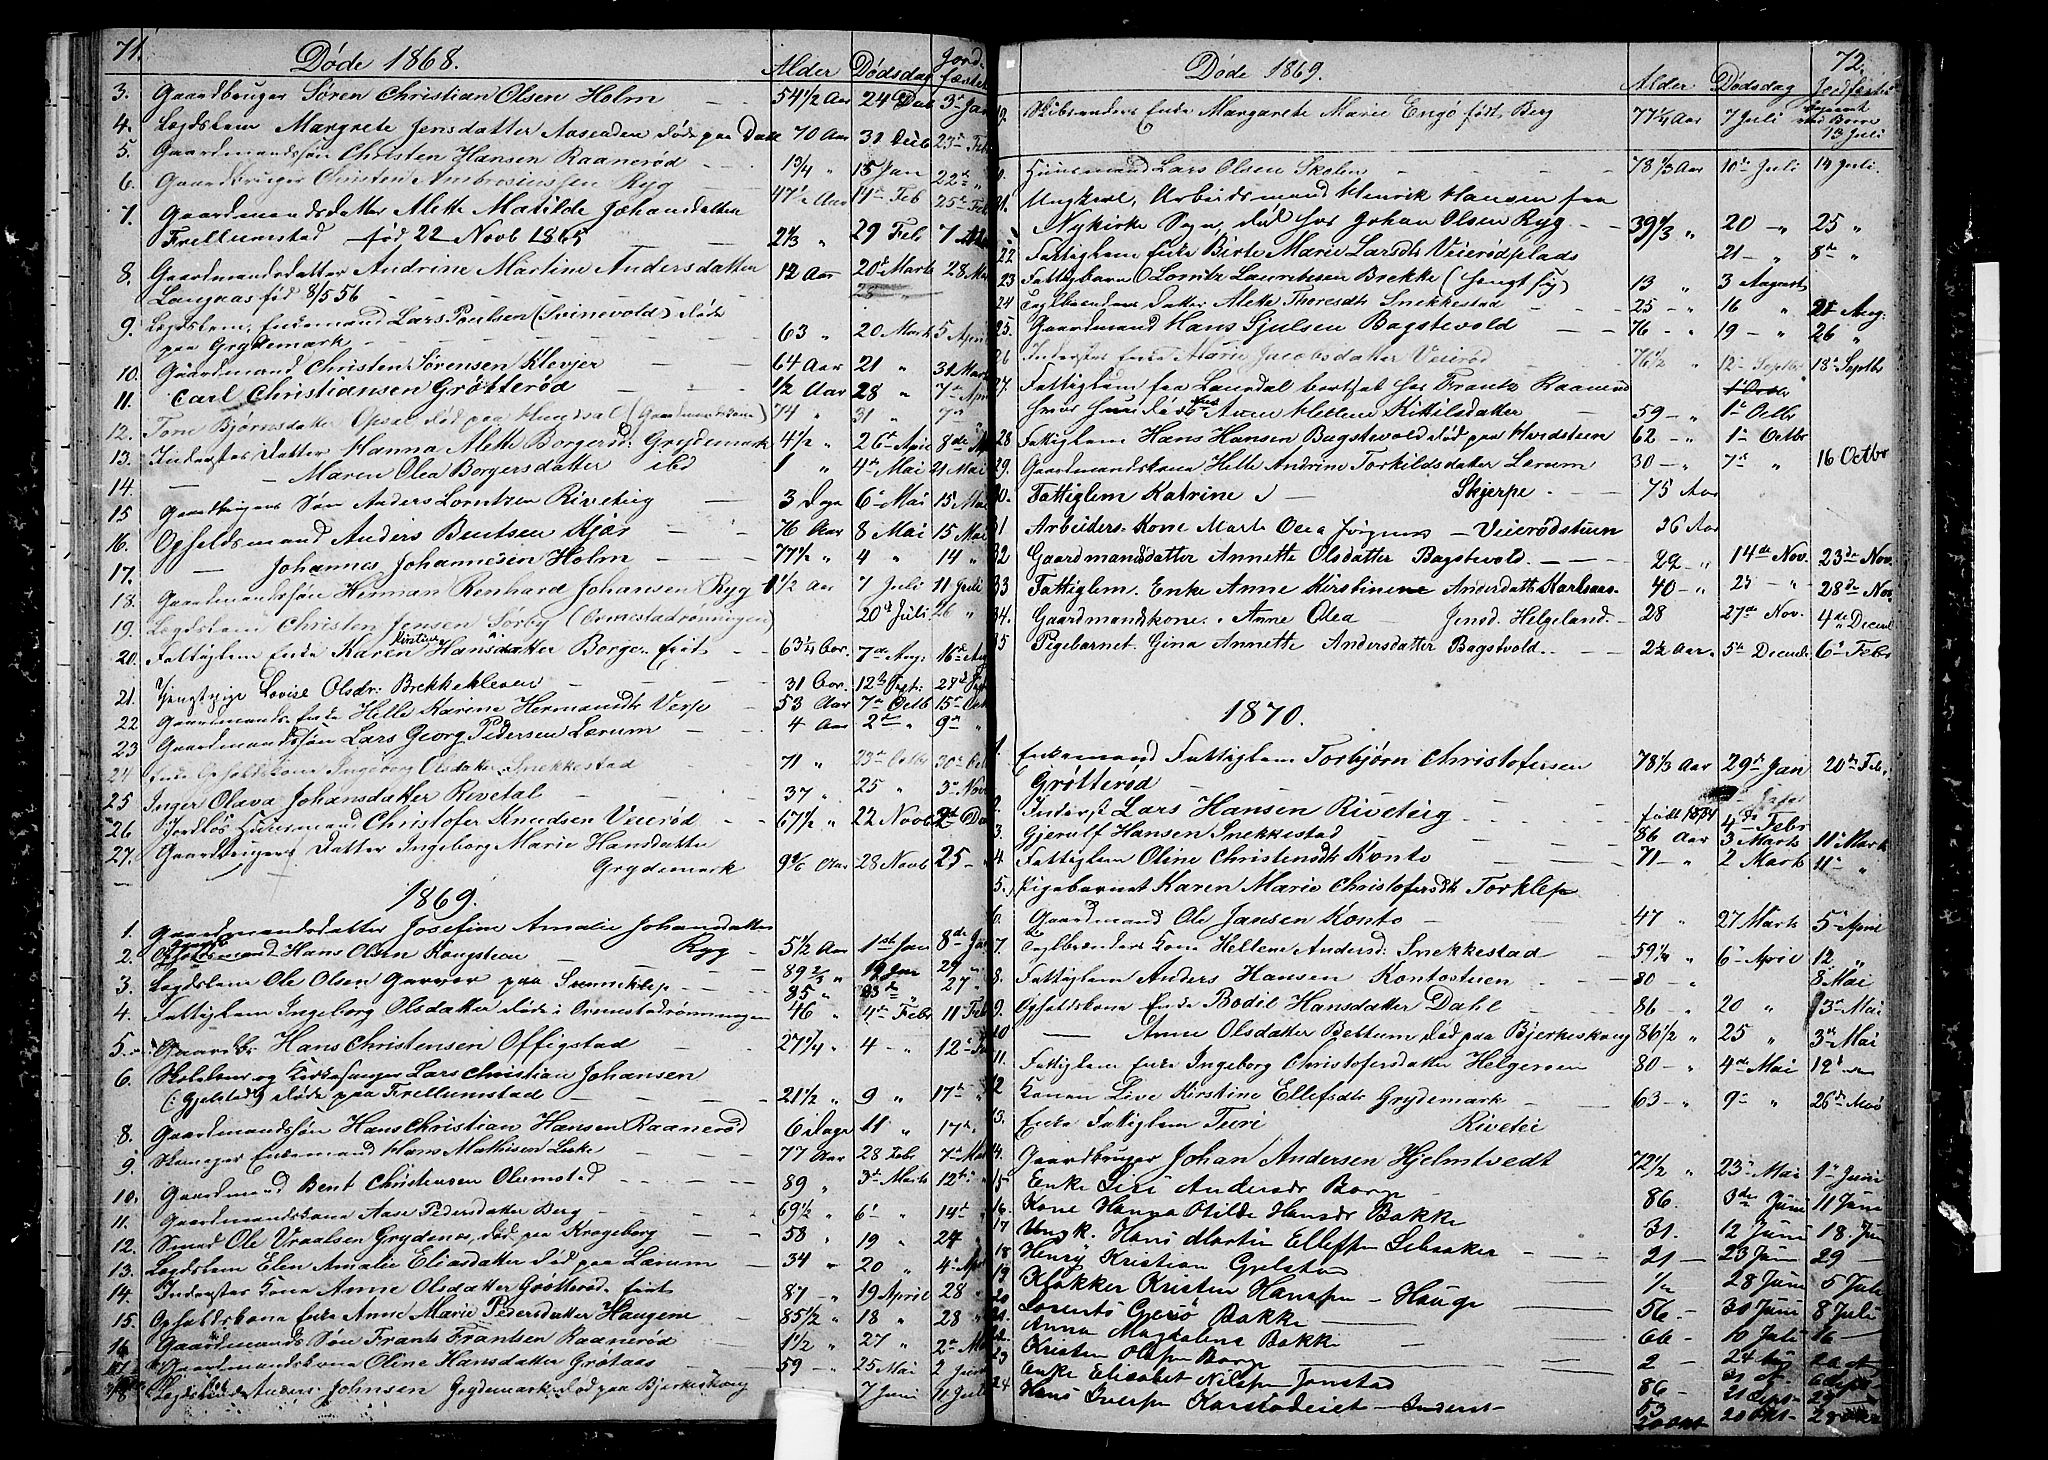 71.
Døde 1868.
Alder Dødsdag Jord-fæstet
3. Gaardbruger Søren Christian Olsen Holm 54 1/2 Aar 24 Dec 3d Jan
4. Lægdslem Margrete Jensdatter Aaseaden død paa Dahl 70 Aar 31 Dec 23de Feb
5. Gaardmandssøn Christen Hansen Raanerød 1 3/4 " 15 Jan
6. Gaardbruger Christen Ambrosiussen Ryg 47 1/2 Aar 14de Feb 22de "
7. Gaardmandsdatter Alette Matilde Johansdatter 25de Feb
Frellumstad fød 22 Novb 1865 2 1/3 " 29 Feb 7
8. Gaardmandsdatter Andrine Martine Andersdatter 12 Aar 20d Marts 28 M
Langaas fød 8/5 56 25 "
9. Lægdslem, Enkemand Lars Poulsen (Svinevold) døde
paa Grydemark 63 " 20 Mark 5 April
10. Gaardmand Christen Sørensen Klevjer 64 Aar 21 " 31 Marts
11. Carl Christiansen Grøtterød 1/2 Aar 28 " 7de Apr
12. Tone Bjørnsdatter Opsal død paa (Gaardmandskone) 74 " 31 " 7de
13. Inderstes Datter Hanna Alette Borgersd: Grydemark 4 1/2 " 26de April 8de
14. — Maren Olea Borgersdatter ibd 1 " 4de Mai 21 Mai
15 Gaardbrugers Søn Anders Lorntzen Riveteig 3 Dage 6de Mai 15 Mai
16. Opholdsmand Anders Bentsen Kjær 76 Aar 8 Mai 15 Mai
17. — Johannes Johannesen Holm 77 1/2 " 4 " 14 "
18. Gaardmandssøn Herman Renhard Johansen Ryg 1 1/2 Aar 7 Juli 11 Juli
19. Lægdslem Christen Jensen Sørby (Ormestadrønningen) 20d Juli 26 "
20. Fattiglem Enke Karen Kirstine Hansdatter Borge 63 1/4 Aar. 7de Aug. 16de Aug
21. Tjenestpige Lovise Olsdr: Brekkekleven 31 Aar. 12te Sept: 28d Sept
22 Gaardmands Enke Helle Karine Hermansdtr Verpe 53 Aar 7de Octb 15de Oct
23 Gaardmandssøn Lars Georg Pedersen Lærum 4 Aar 2de " 9de "
24 Enke Opholdskone Ingeborg Olsdatter Snekkestad 71 " 23de Octbr 30de Oct
25 Inger Olava Johansdatter Rivetal 37 " 25 " 3de Nov
26 Jordløs Huusmand Christofer Knudsen Veierød 67 1/2 " 22 Novb 2d D
27. Gaardbrugers Datter Ingeborg Marie Hansdatter
Grydemark 9 5/6 Aar 28 Novb 25
1869.
1. Gaardmandsdatter Josefine Amalie Johansdatter
Ryg 5 1/2 Aar 1ste Jan 8de Jan
2. Opholdsmand Hans Olsen Kongsteien 89 2/3 " 19 Jan 29 "
3. Lægdslem Ole Olsen Garver paa Sunneklep 85 " 23de 27 "
4. Fattiglem Ingeborg Olsdatter døde i Ormestadrønningen 46 " 4de Febr 11 Feb
5. Gaardbr. Hans Christensen Offigstad 27 1/4 " 4 " 12
6. Skolelærer og Kirkesanger Lars Christian Johansen
(: Gjelstad:) døde paa Frellumstad 21 1/2 " 9 " 17de "
8. Gaardmandssøn Hans Christian Hansen Raanerød 6 Dage 11 " 17de
9. Skomager Enkemand Hans Mathisen Leike 77 Aar 28 Feb 7de Mar
10. Gaardmand Bent Christensen Olumstad 89 " 3de Marts 12te "
11. Gaardmandskone Aase Pedersdatter Berg 69 1/2 " 6 " 14de "
12. Smed Ole Vraalsen Grydenes, død paa Krageborg 58 " 19 " 24 "
13. Lægdslem Elen Amalie Eliasdatter død paa Lærum 34 " 20 " 4de Apr
14. Inderstes Kone Anne Olsdatter Grøtterød 87 " 19 April 28 "
15. Opholdskone Enke Anne Marie Pedersdatter Haugene 85 1/2 " 18 " 28 "
16 Gaardmands Søn Frants Frantsen Raanerød 1 1/2 " 27 " 2de Mai
17. Gaardmandskone Oline Hansdatter Grøtaas 59 25 Mai 2 Juni
18 Lægdslem Anders Johnsen Grydemark død paa Bjerkeskoug 7 Juni 11 Juli
72.
Døde 1869.
Alder Dødsdag Jordfæstet
19. Skibsmands Enke Margarete Marie Engø født Berg 77 1/4 Aar 7 Juli ved Borre 13 Juli
Huusmand Lars Olsen Skolen 78 1/3 Aar 10de Juli 14 Juli.
21. Ungkarl, Arbeidsmand Henrik Hansen fra
Nykirke Sogn, død hos Johan Olsen Ryg 39 1/3 " 20 " 25 "
22 Fattiglem Enke Birte Marie Larsdtr Veierødplads 21 " 8de "
23 Fattigbarn Olomtz Lauritssen Brekke (Sengt syg) 13 " 3 August
24 Teglbrænders Datter Alette Thoresdtr Snekkestad 25 " 16 " 21 Aug.
25. Gaardmand Hans Sjulsen Bagstevold 76 " 19 " 26 "
26 Inderstes Enke Marie Jacobsdatter Veierød 76 1/2 12te Septbr 18de Septbr
27. Fattiglem fra Laurdal bortsat hos Frantz Raanerød
hvor hun døde Anne Helene Kittilsdatter 59 " 1ste Octb
28 Fattiglem Hans Hansen Bagstevold død paa Hvidsteen 62 " 1ste Octbr
29. Gaardmandskone Helle Andrine Torkildsdatter Lærum 30 " 7de " 16 Octbr
30. Fattiglem Katrine — Skjerpe 75 Aar
31 Arbeiders Kone Marte Olea Jørgens — Veierødstuen 36 Aar
32 Gaardmandsdatter Annette Olsdatter Bagstevold 22 " 14de Nov. 23de Nov.
33 Fattiglem Enke Anne Kirstine Andersdatt Karlsaas 40 " 23 " 28de Nov
34. Gaardmandskone Anne Olea Jensd. Helgeland 28 27de Nov. 4de Decemb
35 Pigebarnet Gina Annette Andersdatter Bagstvold 2 1/2 Aar. 5te Decemb 6te Febr
1870.
1. Enkemand Fattiglem Torbjørn Christofersen
Grøtterød 78 1/3 Aar 29de Jan 20de Feb.
2. Inderst Lars Hansen Riveteig født 1884 4de Febr
3. Gjerulf Hansen Snekkestad 86 Aar 3 Marts 11te Mark
4. Fattiglem Oline Christensdtr Konto 71 " 2 Marts 11te "
5. Pigebarnet Karen Marie Christofersdtr Torklep
6. Gaardmand Ole Jansen Konto 47 " 27 Marts 5te April
7. Teglbrænders Kone Hellene Andersd: Snekkestad 59 1/4 " 6te April 12 "
8. Fattiglem Anders Hansen Kontostuen 80 8de Mai
9. Opholdskone Enke Bodil Hansdatter Dahl 86 20 " 3de Mai
10 — Anne Olsdatter Bettum død paa Bjerkeskoug 86 1/2 " 25 " 3de Mai
11. Fattiglem Enke Ingeborg Christofersdatter Helgeroen 80 " 4de Mai 12te
12 Konen Live Kirstine Ellefsdtr Grydemark 63 " 9de " 26de Mai
13. Enke Fattiglem Teiri Rivetei
14. Gaardbruger Johan Andersen Hjelmtvedt 72 1/2 " 23de Mai 1ste Juni
15 Enke Siri Andersdr Borge 86. 3de Juni 11 Juni
16. Kone Hanna Otilde Hansdr Bakke 31. 12 Juni 18 Jun
17 Ungk. Hans Martin Ellefsen Sebsaker 21 23 Juni 29
18 Henry Kristian Gjelstad 1/2 28 Juni 5 Juli
19 Klokker Kristen Hanssen — Hauge 56 30 Juni 8 Juli
20 Lorents Gjersø Bakke 66 10 Juli 16
Anna Magdalena Bakke 2 24
Kristen Olsen Borge 86
23 Enke Elisabet Nilssen Jonstad 53 21 Sept
24 Hans Iversen Karstadeiet — Inderst 20 Okt 28 Okt